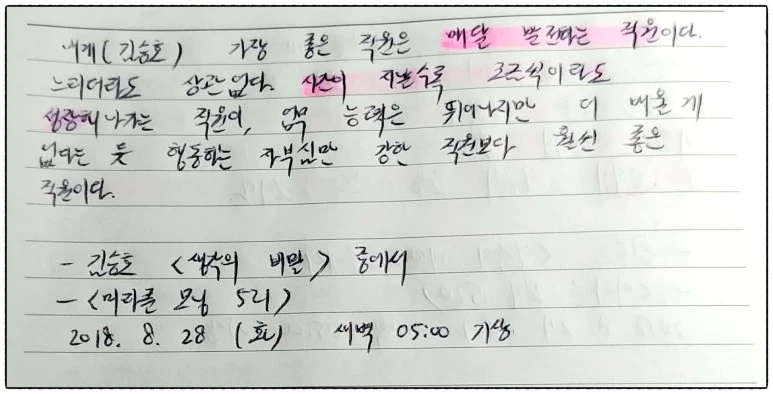 내게(김승호) 가장 좋은 직원은 매달 발전하는 직원이다.
느리더라도 상관없다. 시간이 지날수록 조금씩이라도
성장해 나가는 직원이, 업무 능력은 뛰어나지만 더 배울 게
없다는 듯 행동하는 자부심만 강한 직원보다 훨씬 좋은
직원이다.
- 김승호 <생각의 비밀> 중에서
- <미라클 모닝 521>
2018. 8. 28 (화) 새벽 05:00 기상